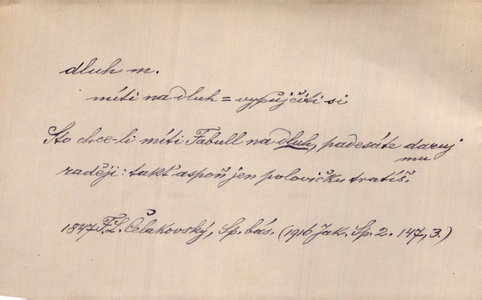 dluh m.
míti na dluh = vypůjčiti si
Sto chce-li míti Fabull na dluh, padesáte daruj
mu
raději: takť aspoň jen polovičku tratíš.
1847 F. L. Čelakovský, Sp. bás. (1916 Jak. Sp. 2. 147, 3.)